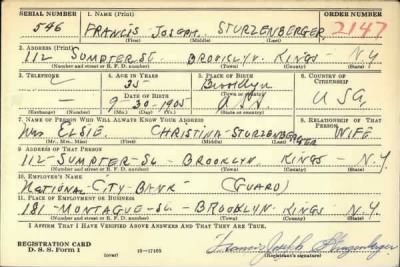 SERIAL NUMBER 1. NAME (Print) ORDER NUMBER
546 FRANCIS JOSEPH STURZENBERGER 2147
(First) (Middle) (Last)
2. ADDRESS (Print)
112 SUMPTER ST. BROOKLYN. KINGS N.Y.
(Number and street or R. F. D. number) (Town) (County) (State)
3. TELEPHONE 4. AGE IN YEARS 5. PLACE OF BIRTH 6. COUNTRY OF CITIZENSHIP
35 Brooklyn
DATE OF BIRTH (Town or county)
9-30-1905 U.S.A. USA
(Exchange) (Number) (Mo.) (Day) (Yr.) (State or country)
7. NAME OF PERSON WHO WILL ALWAYS KNOW YOUR ADDRESS 8. RELATIONSHIP OF THAT PERSON
Mrs ELSIE CHRISTINA STURZENBERGER WIFE
(Mr., Mrs., Miss) (First) (Middle) (Last)
9. ADDRESS OF THAT PERSON
112-SUMPTER-St- BROOKLYN KINGS - N.Y.
(Number and street or R. F. D. number) (Town) (County) (State)
10. EMPLOYER'S NAME
NATIONAL-CITY-BANK (GUARD)
11. PLACE OF EMPLOYMENT OR BUSINESS
181-MONTAGUE-St- BROOKLYN KINGS N.Y.
(Number and street or R. F. D. number) (Town) (County) (State)
I AFFIRM THAT I HAVE VERIFIED ABOVE ANSWERS AND THAT THEY ARE TRUE.
REGISTRATION CARD
D. S. S. Form 1 (over) 16-17105 Francis Joseph Sturzenberger
(Registrant's signature)